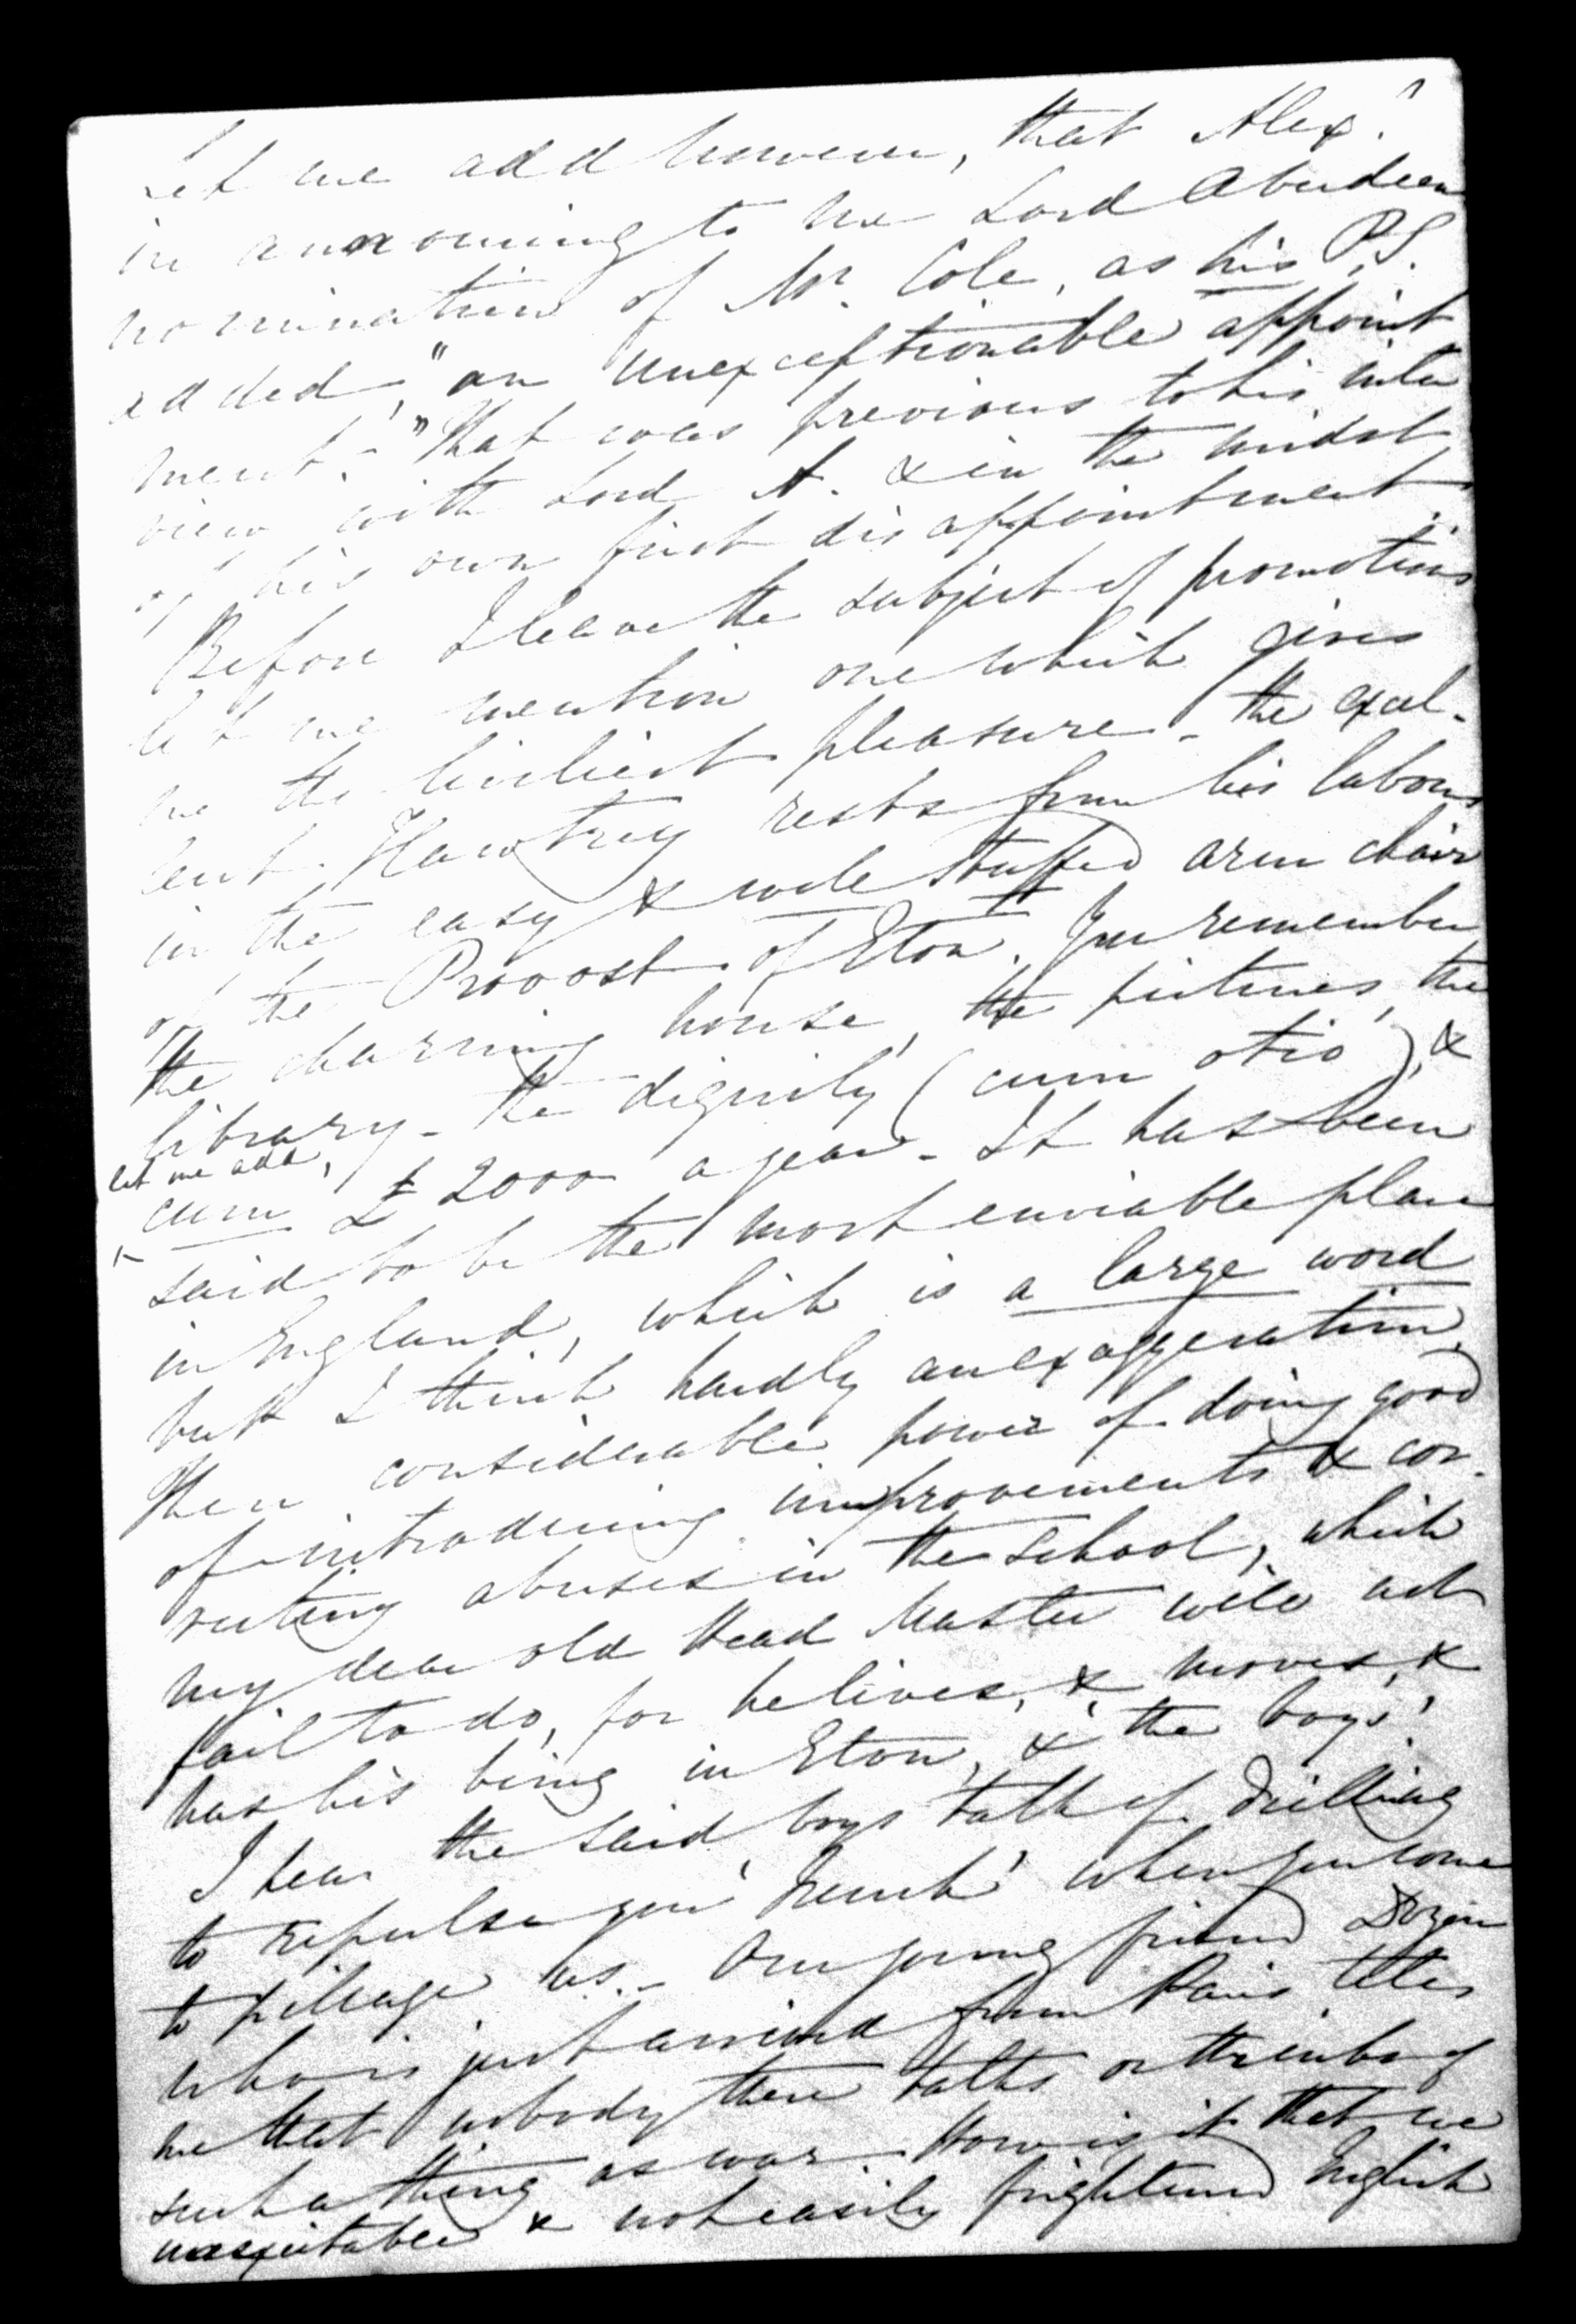 Let me add however, that Alexr
in announcing to me Lord Aberdeen
nomination of Mr. Cole, as his P.S.
added, "an unexceptionable appoint
ment." That was previous to his inter
view with Lord A. & in the midst
of his own first disappointment.
Before I leave the subject of promotions
let me mention one which gives
me the liveliest pleasure - the excel-
lent Hawtrey rests from his labours
in the easy & well stuffed arm chair
of the Provost of Eton. You remember
the charming house, the pictures, the
library - the dignity (cum otio), &
let me add,
cum £2000 a year - It has been
said to be the most enviable place
in England, which is a large word
but I think hardly an exaggeration.
Then considerable power of doing good
of introducing improvements & cor-
recting abuses in the school, which
my dear old Head Master will not
fail to do, for he lives, & moves, &
has his being in Eton, & the boys!
I hear the said boys talk of drilling
to repulse you 'French' when you come
to pillage us. - Our young friend
who is just arrived from Paris tells
me that nobody there talks or thinks of
such a thing as war. How is it that we
& not easily frightened English